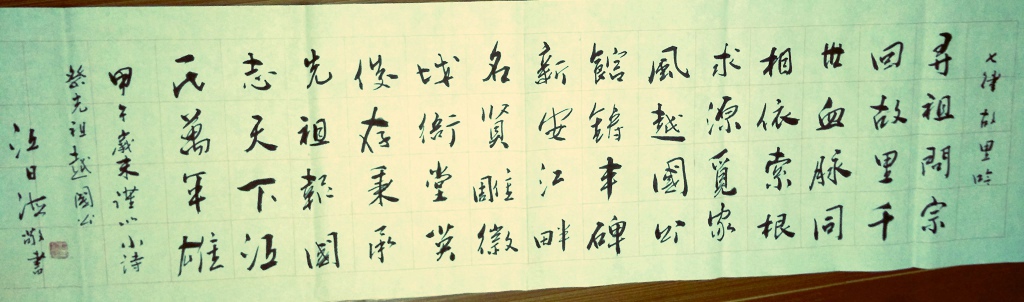 七律 故里吟
尋祖問宗
回故里千
世血脉同
相依索根
求源覓家
風越國公
館鑄丰碑
新安江畔
名賢雕徽
城衙堂英
俊存秉承
先祖報國
志天下汪
氏萬年雄
甲午歲末謹以小詩
祭先祖越國公
汪日敬書